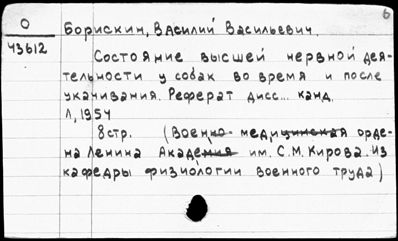 б
О
Ч3612
Борискин, Василий Васильевич.
Состояние высшей нервной дея-
тельности у собак во время и после
укачивания. Реферат дисс... канд.
Л, 1954
8 стр. (Военно-медицинская орде-
на Ленина Академия им. С.М. Кирова. Из
кафедры физиологии военного труда)